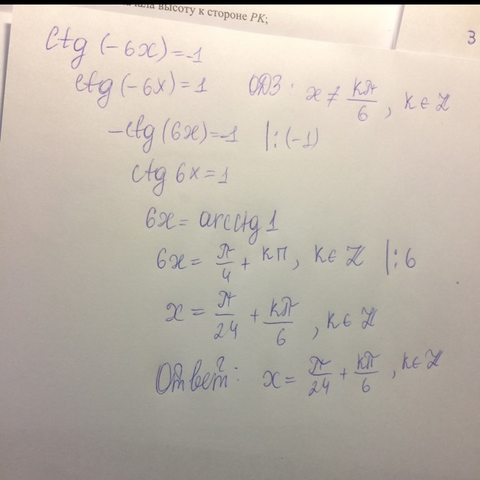 ала высоту к стороне PK;
3
Ctg (-6x) = -1
ctg (-6x) = 1 ОДЗ: x ≠ kπ/6, k ∈ Z
-ctg (6x) = -1 |:(-1)
ctg 6x = 1
6x = arcctg 1
6x = π/4 + kπ, k ∈ Z |:6
x = π/24 + kπ/6, k ∈ Z
Ответ: x = π/24 + kπ/6, k ∈ Z